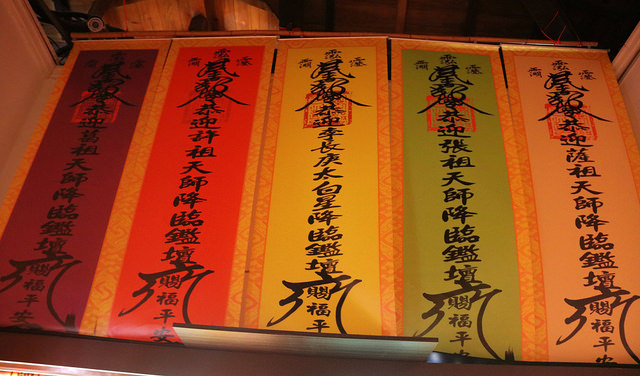 恭迎薩祖天師降臨鑑壇
賜福平安
恭迎張祖天師降臨鑑壇
賜福平安
恭迎李長庚太白星降臨鑑壇
賜福平
恭迎許祖天師降臨鑑壇
賜福平安
恭迎葛祖天師降臨鑑壇
賜福平安